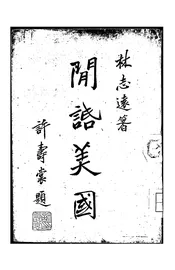 林志遠著
閒話美國
許壽裳題